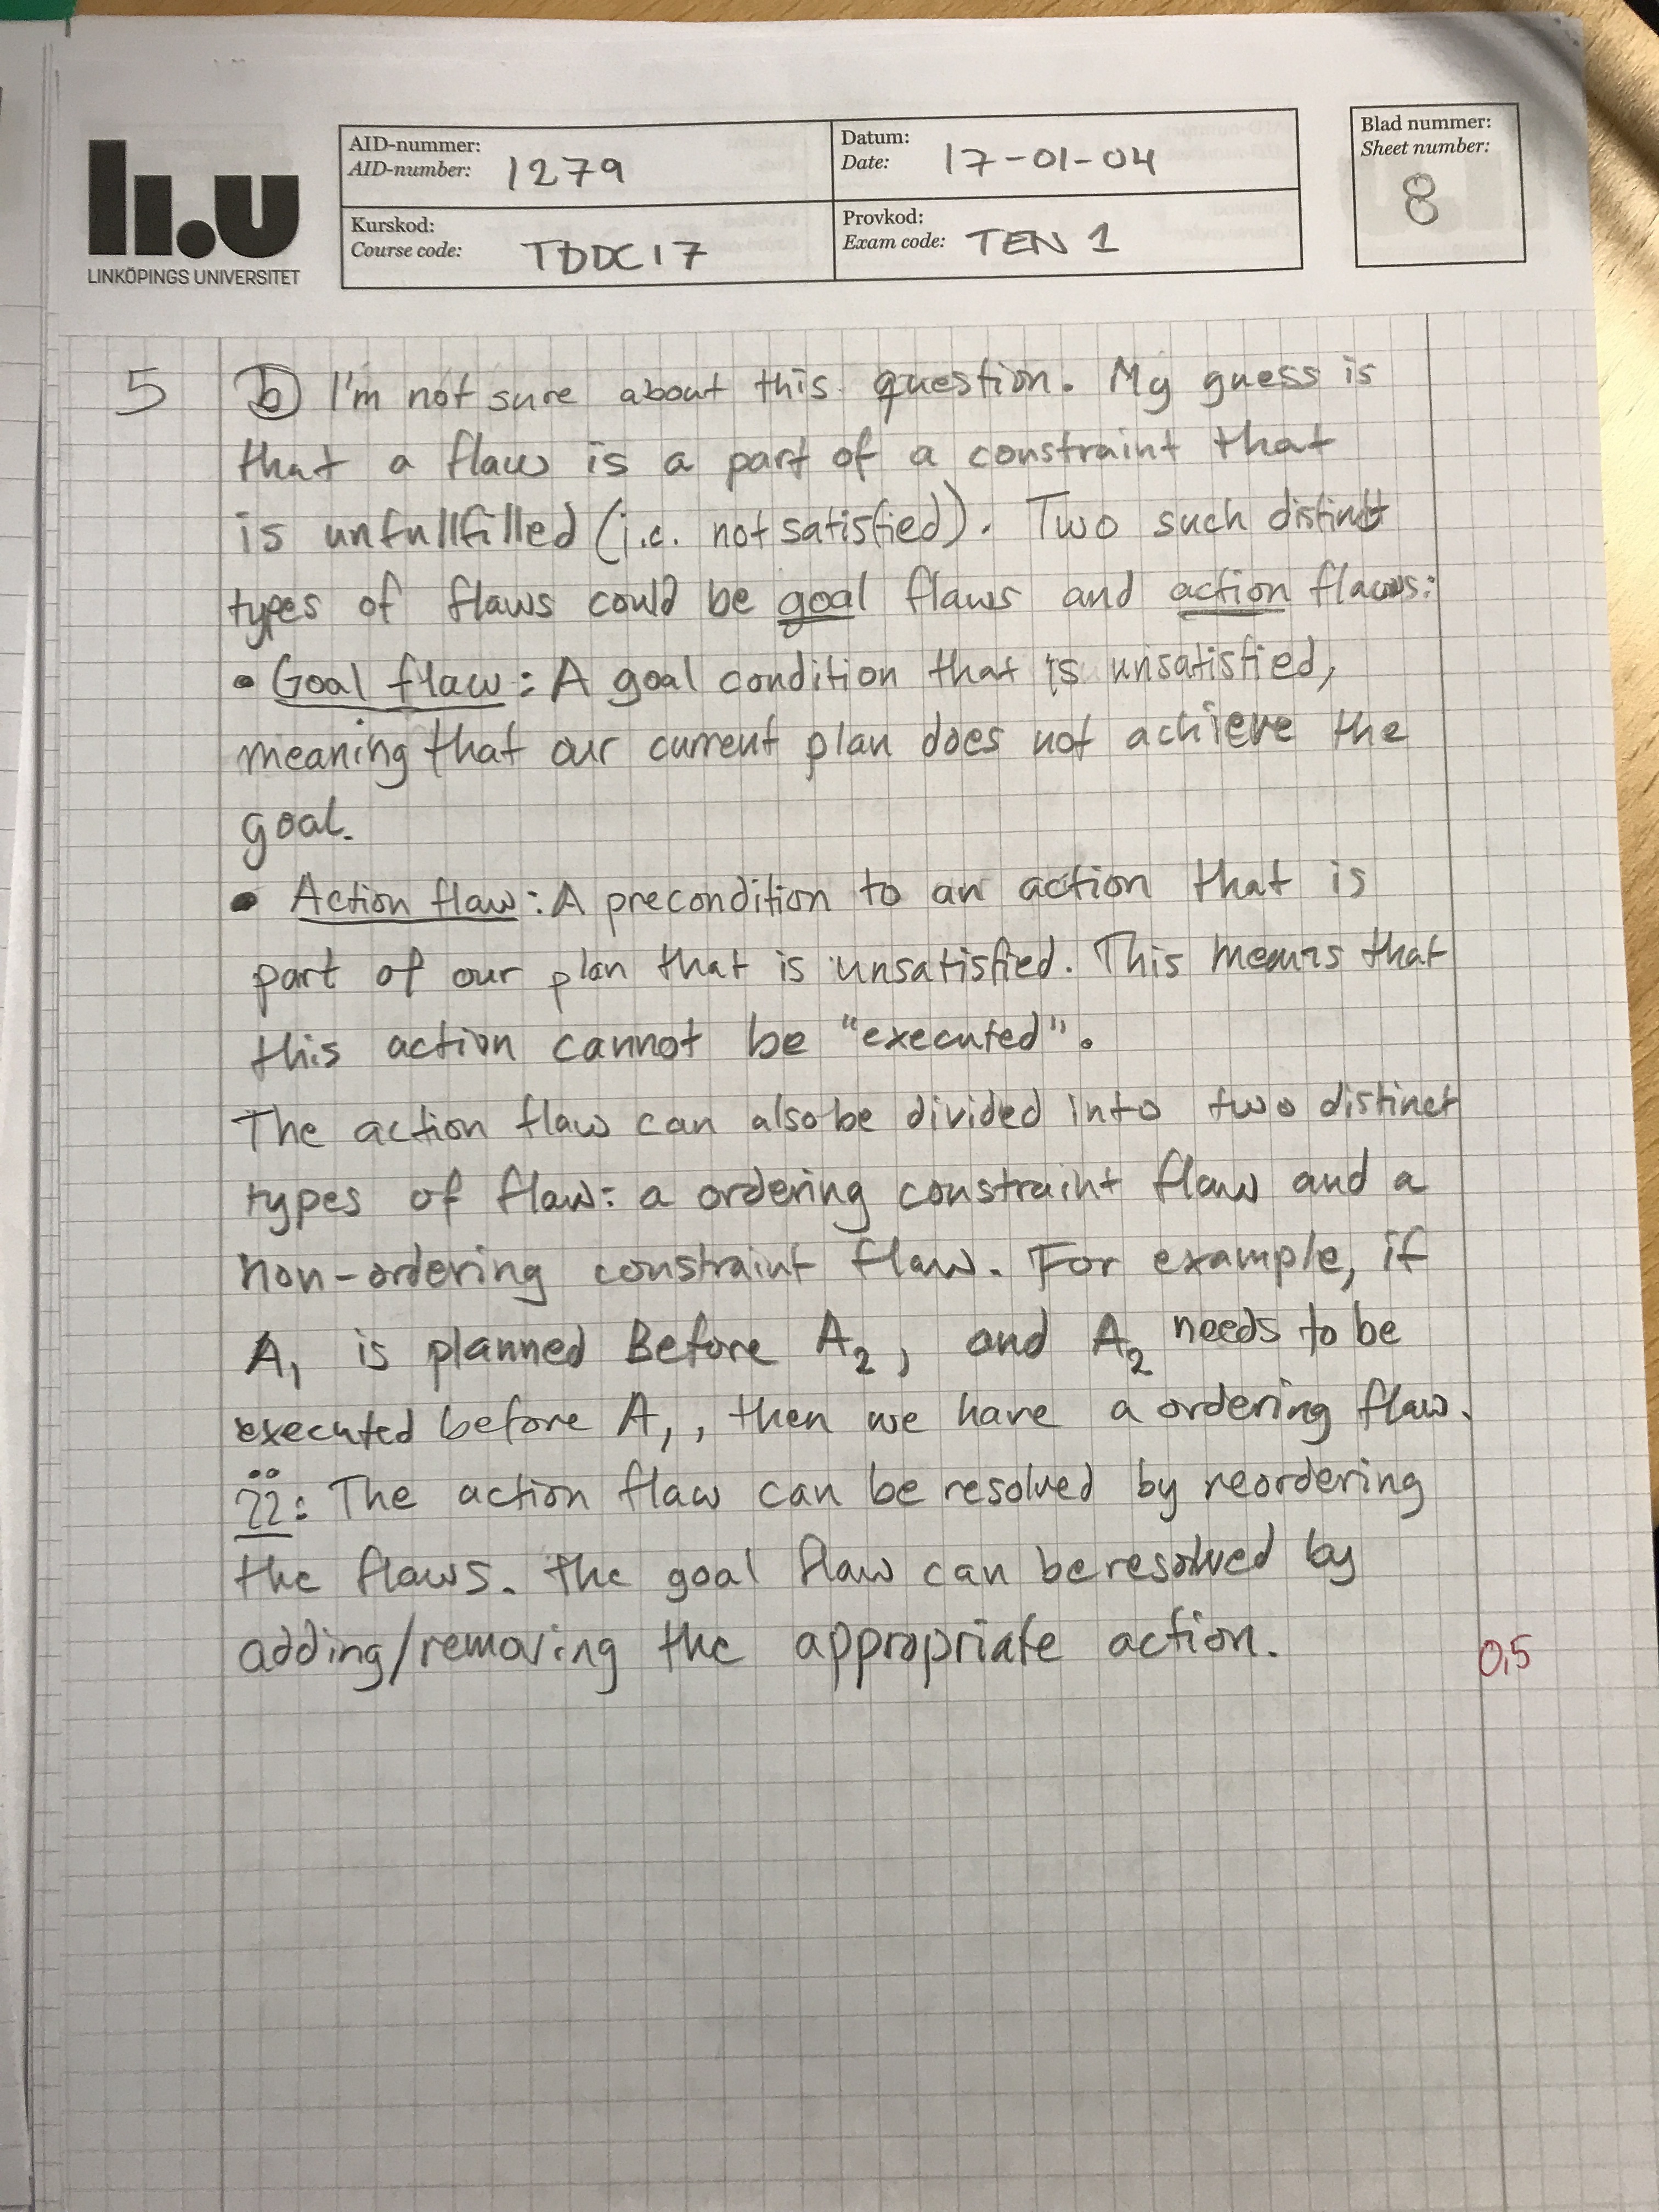 AID-nummer:
AID-number: 1279
Datum:
Date: 17-01-04
Blad nummer:
Sheet number:
8
Kurskod:
Course code: TDDC17
Provkod:
Exam code: TEN 1
li.u
LINKÖPINGS UNIVERSITET
5 b) I'm not sure about this question. My guess is
that a flaw is a part of a constraint that
is unfullfilled (i.e. not satisfied). Two such distinct
types of flaws could be goal flaws and action flaws:
• Goal flaw: A goal condition that is unsatisfied,
meaning that our current plan does not achieve the
goal.
• Action flaw: A precondition to an action that is
part of our plan that is unsatisfied. This means that
this action cannot be "executed".
The action flaw can also be divided into two distinct
types of flaw: a ordering constraint flaw and a
non-ordering constraint flaw. For example, if
A₁ is planned Before A₂, and A₂ needs to be
executed before A₁, then we have a ordering flaw.
ii: The action flaw can be resolved by reordering
the flaws. the goal flaw can be resolved by
adding/removing the appropriate action.
0,5